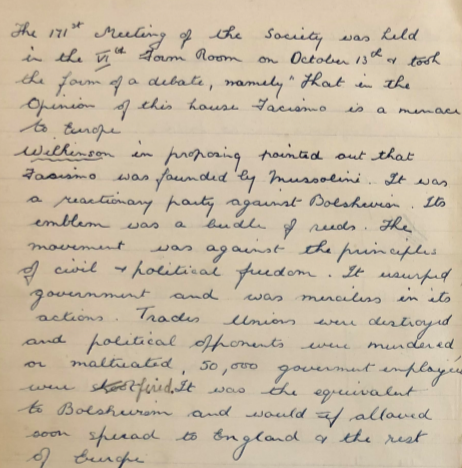 The 171st Meeting of the Society was held
in the VIth Form Room on October 13th & took
the form of a debate, namely "That in the
Opinion of this house Facismo is a menace
to Europe
Wilkinson in proposing pointed out that
Facismo was founded by Mussolini. It was
a reactionary party against Bolshevism. Its
emblem was a budle of reeds. The
movement was against the principles
of civil & political freedom. It usurped
government and was merciless in its
actions. Trades Unions were destroyed
and political opponents were murdered
or maltreated, 50,000 goverment employees
were fired. It was the equivalent
to Bolshevism and would if allowed
soon spread to England & the rest
of Europe